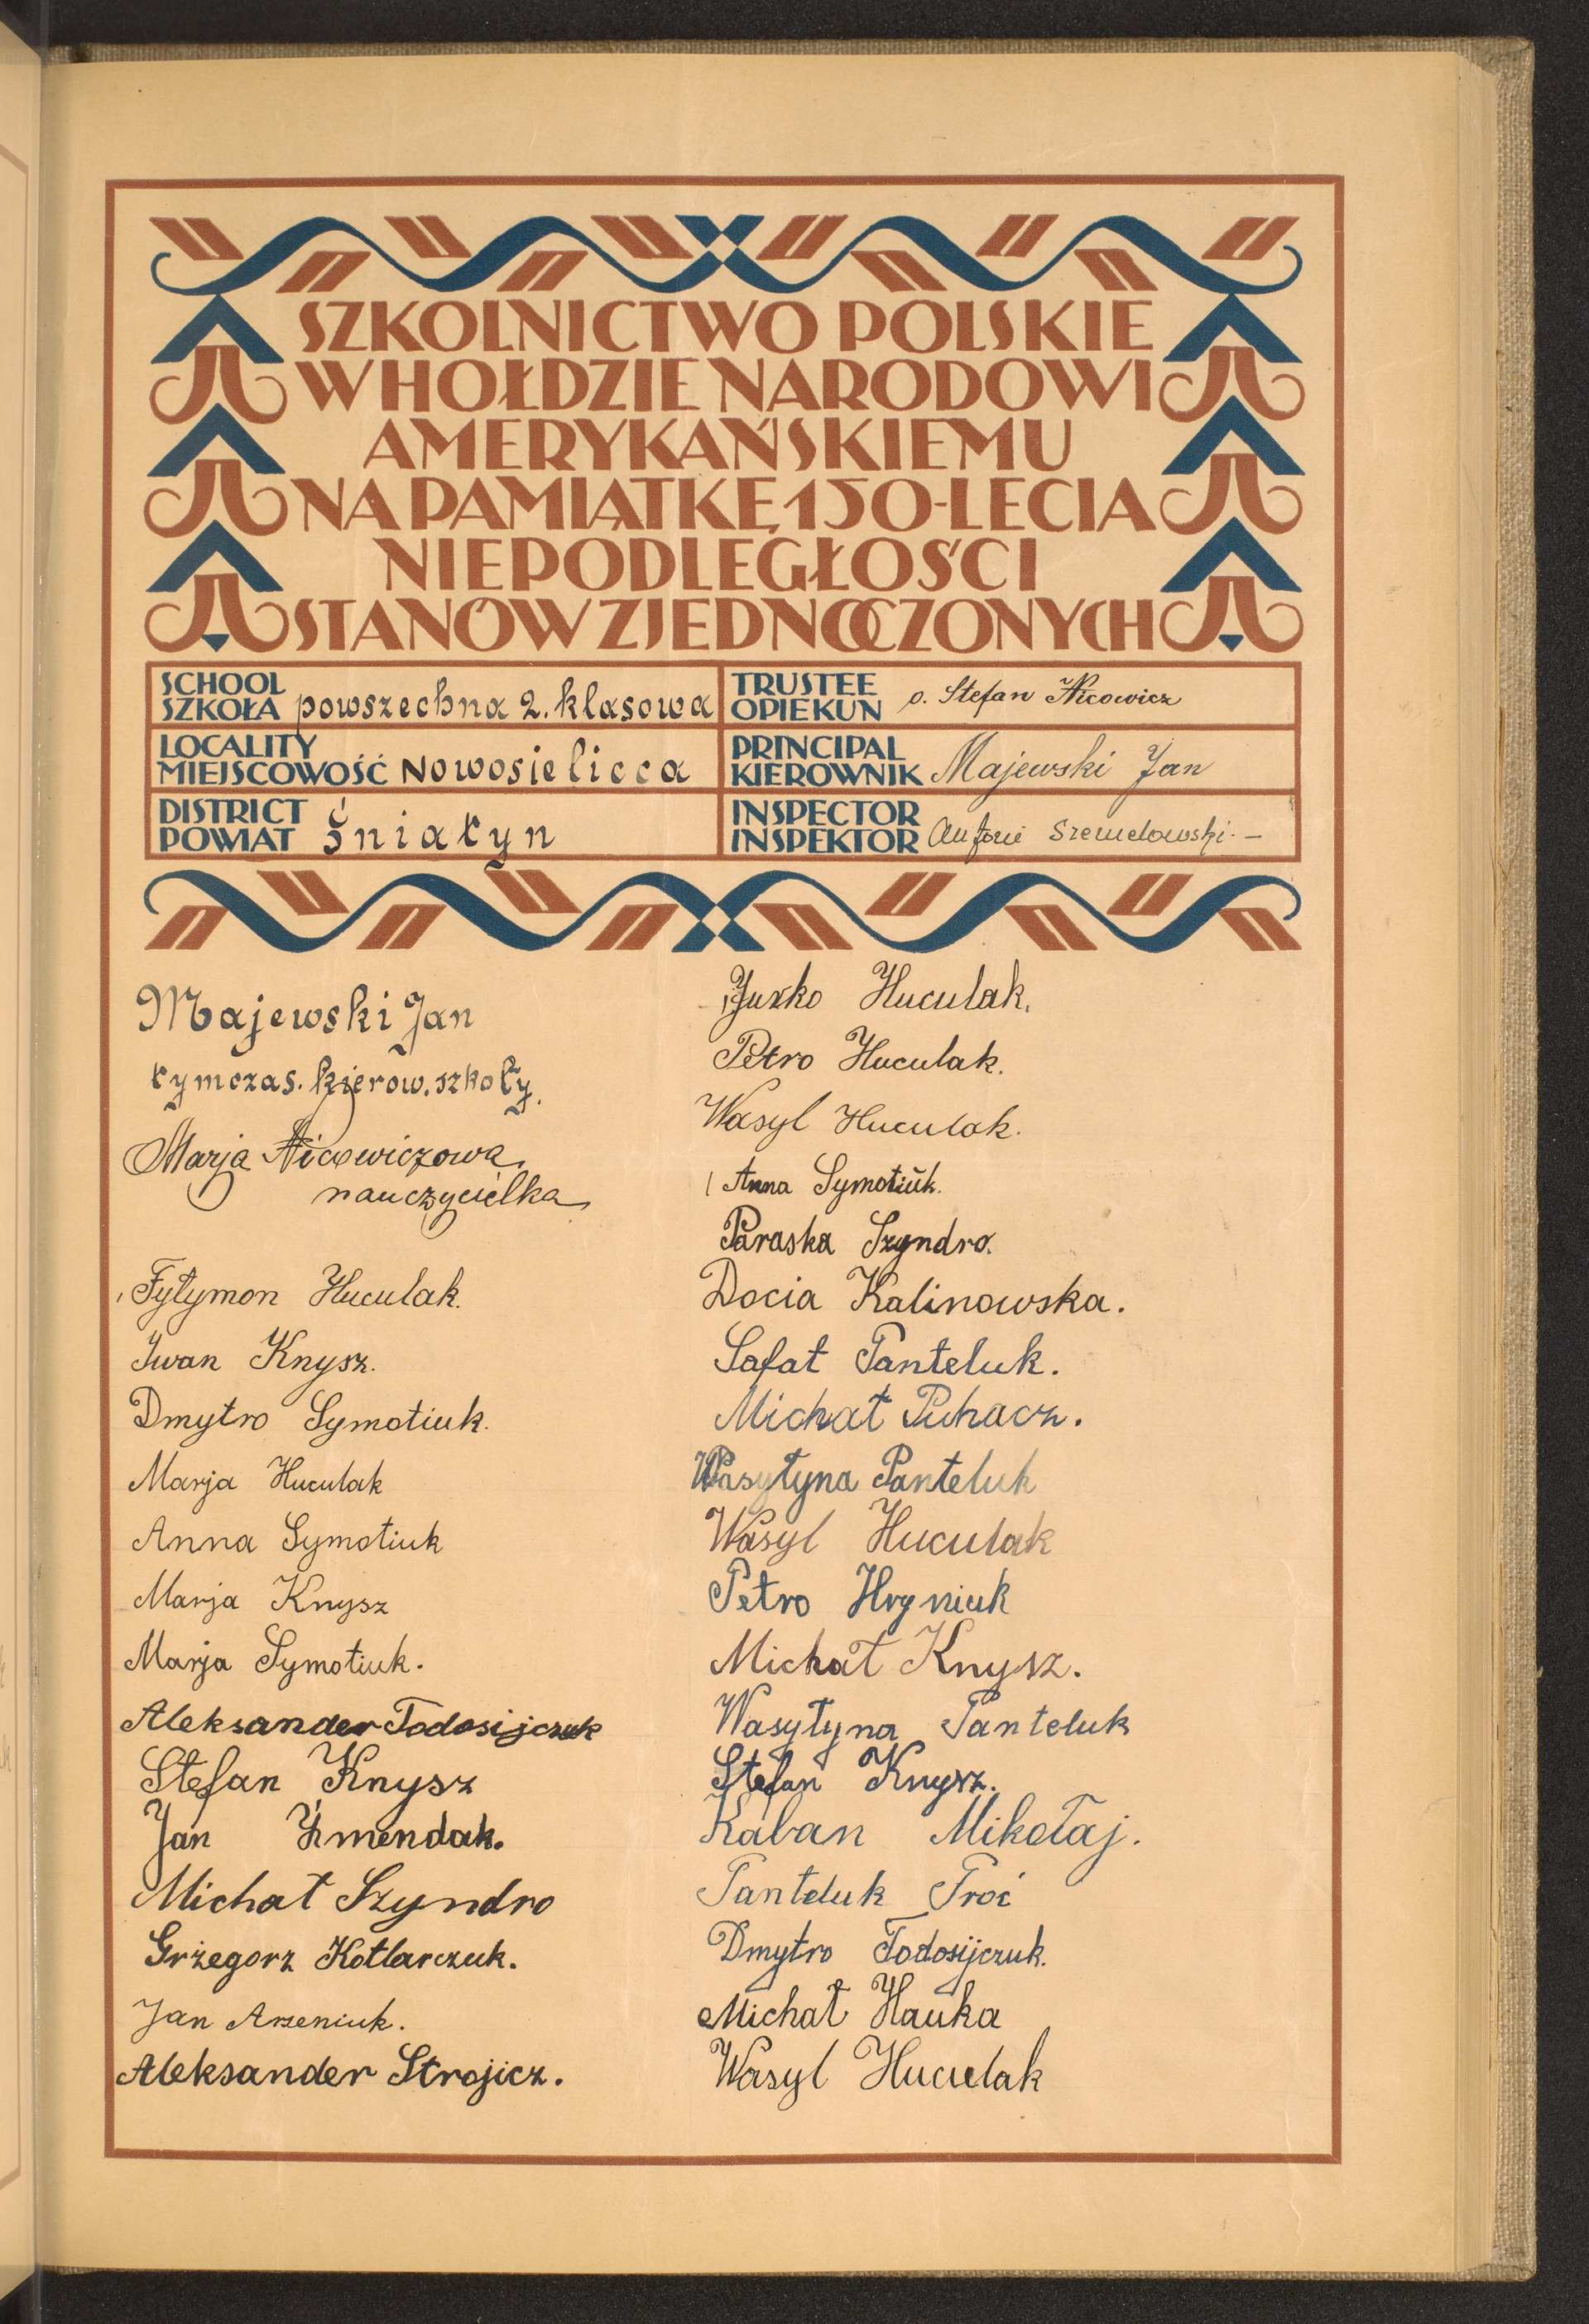 SZKOLNICTWO POLSKIE
W HOŁDZIE NARODOWI
AMERYKAŃSKIEMU
NA PAMIĄTKĘ 150-LECIA
NIEPODLEGŁOŚCI
STANÓW ZJEDNOCZONYCH
SCHOOL
SZKOŁA powszechna 2. klasowa
TRUSTEE
OPIEKUN o. Stefan Nicowicz
LOCALITY
MIEJSCOWOŚĆ Nowosielicca
PRINCIPAL
KIEROWNIK Majewski Jan
DISTRICT
POWIAT Śniatyn
INSPECTOR
INSPEKTOR Antoni Szemelowski. —
Majewski Jan
tymczas. kierow. szkoły.
Marja Nicowiczowa,
nauczycielka
Fyłymon Huculak.
Iwan Knysz.
Dmytro Symotiuk.
Marja Huculak
Anna Symotiuk
Marja Knysz
Marja Symotiuk.
Aleksander Todosijczuk
Stefan Knysz
Jan Żmendak.
Michał Szyndro
Grzegorz Kotlarczuk.
Jan Arseniuk.
Aleksander Strojicz.
Jurko Huculak.
Petro Huculak.
Wasyl Huculak.
Anna Symotiŭk.
Paraska Szyndro.
Docia Kalinowska.
Safat Panteluk.
Michał Puhacz.
Wasyłyna Panteluk
Wasyl Huculak
Petro Hryniuk
Michał Knysz.
Wasyłyna Panteluk
Stefan Knysz.
Kaban Mikołaj.
Panteluk Proć
Dmytro Todosijczuk.
Michał Hauka
Wasyl Huculak